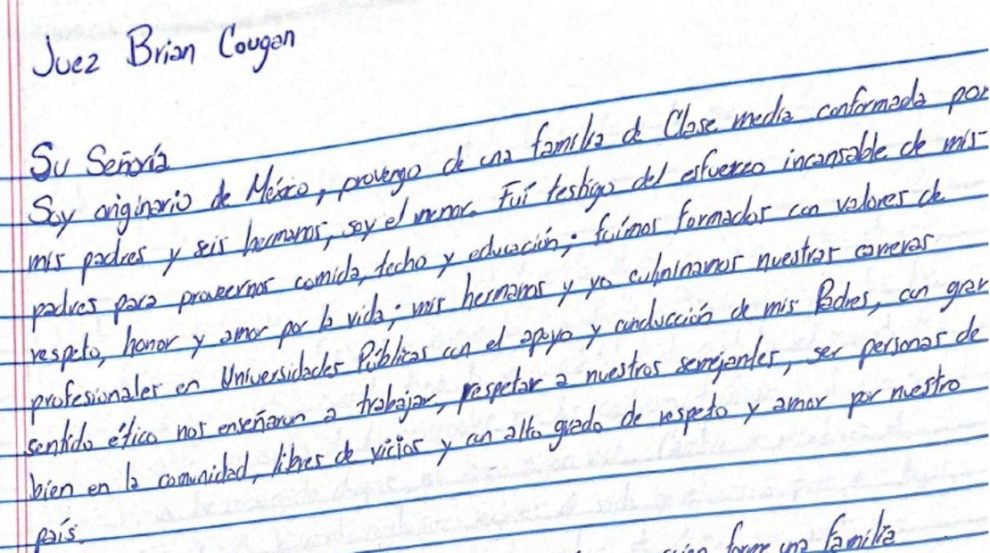 Juez Brian Cougan
Su Señoría
Soy originario de México, provengo de una familia de Clase media conformada por
mis padres y seis hermanos, soy el menor. Fuí testigo del esfuerzo incansable de mis
padres para proveernos comida, techo y educación; fuímos formados con valores de
respeto, honor y amor por la vida; mis hermanos y yo culminamos nuestras carreras
profesionales en Universidades Públicas con el apoyo y conducción de mis Padres, con gran
sentido ético nos enseñaron a trabajar, respetar a nuestros semejantes, ser personas de
bien en la comunidad, libres de vicios y con alto grado de respeto y amor por nuestro
país.
forme una familia